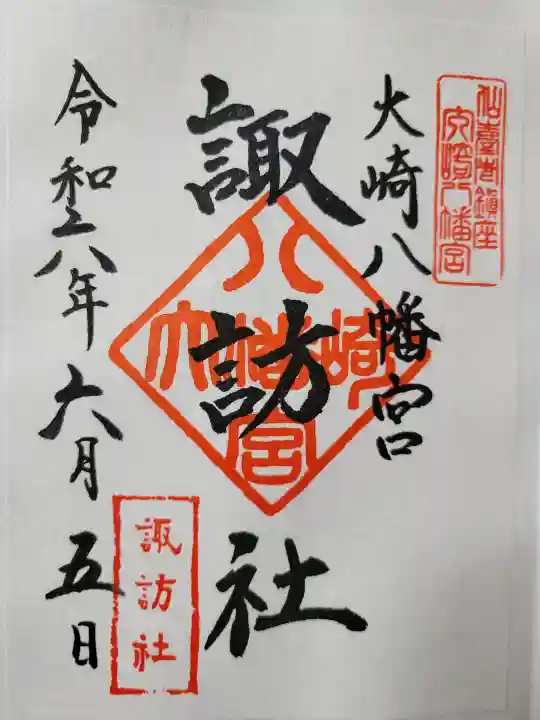 仙臺鎮座
大崎八幡宮
大崎八幡宮
諏訪社
八幡宮
大崎
令和六年六月五日
諏訪社